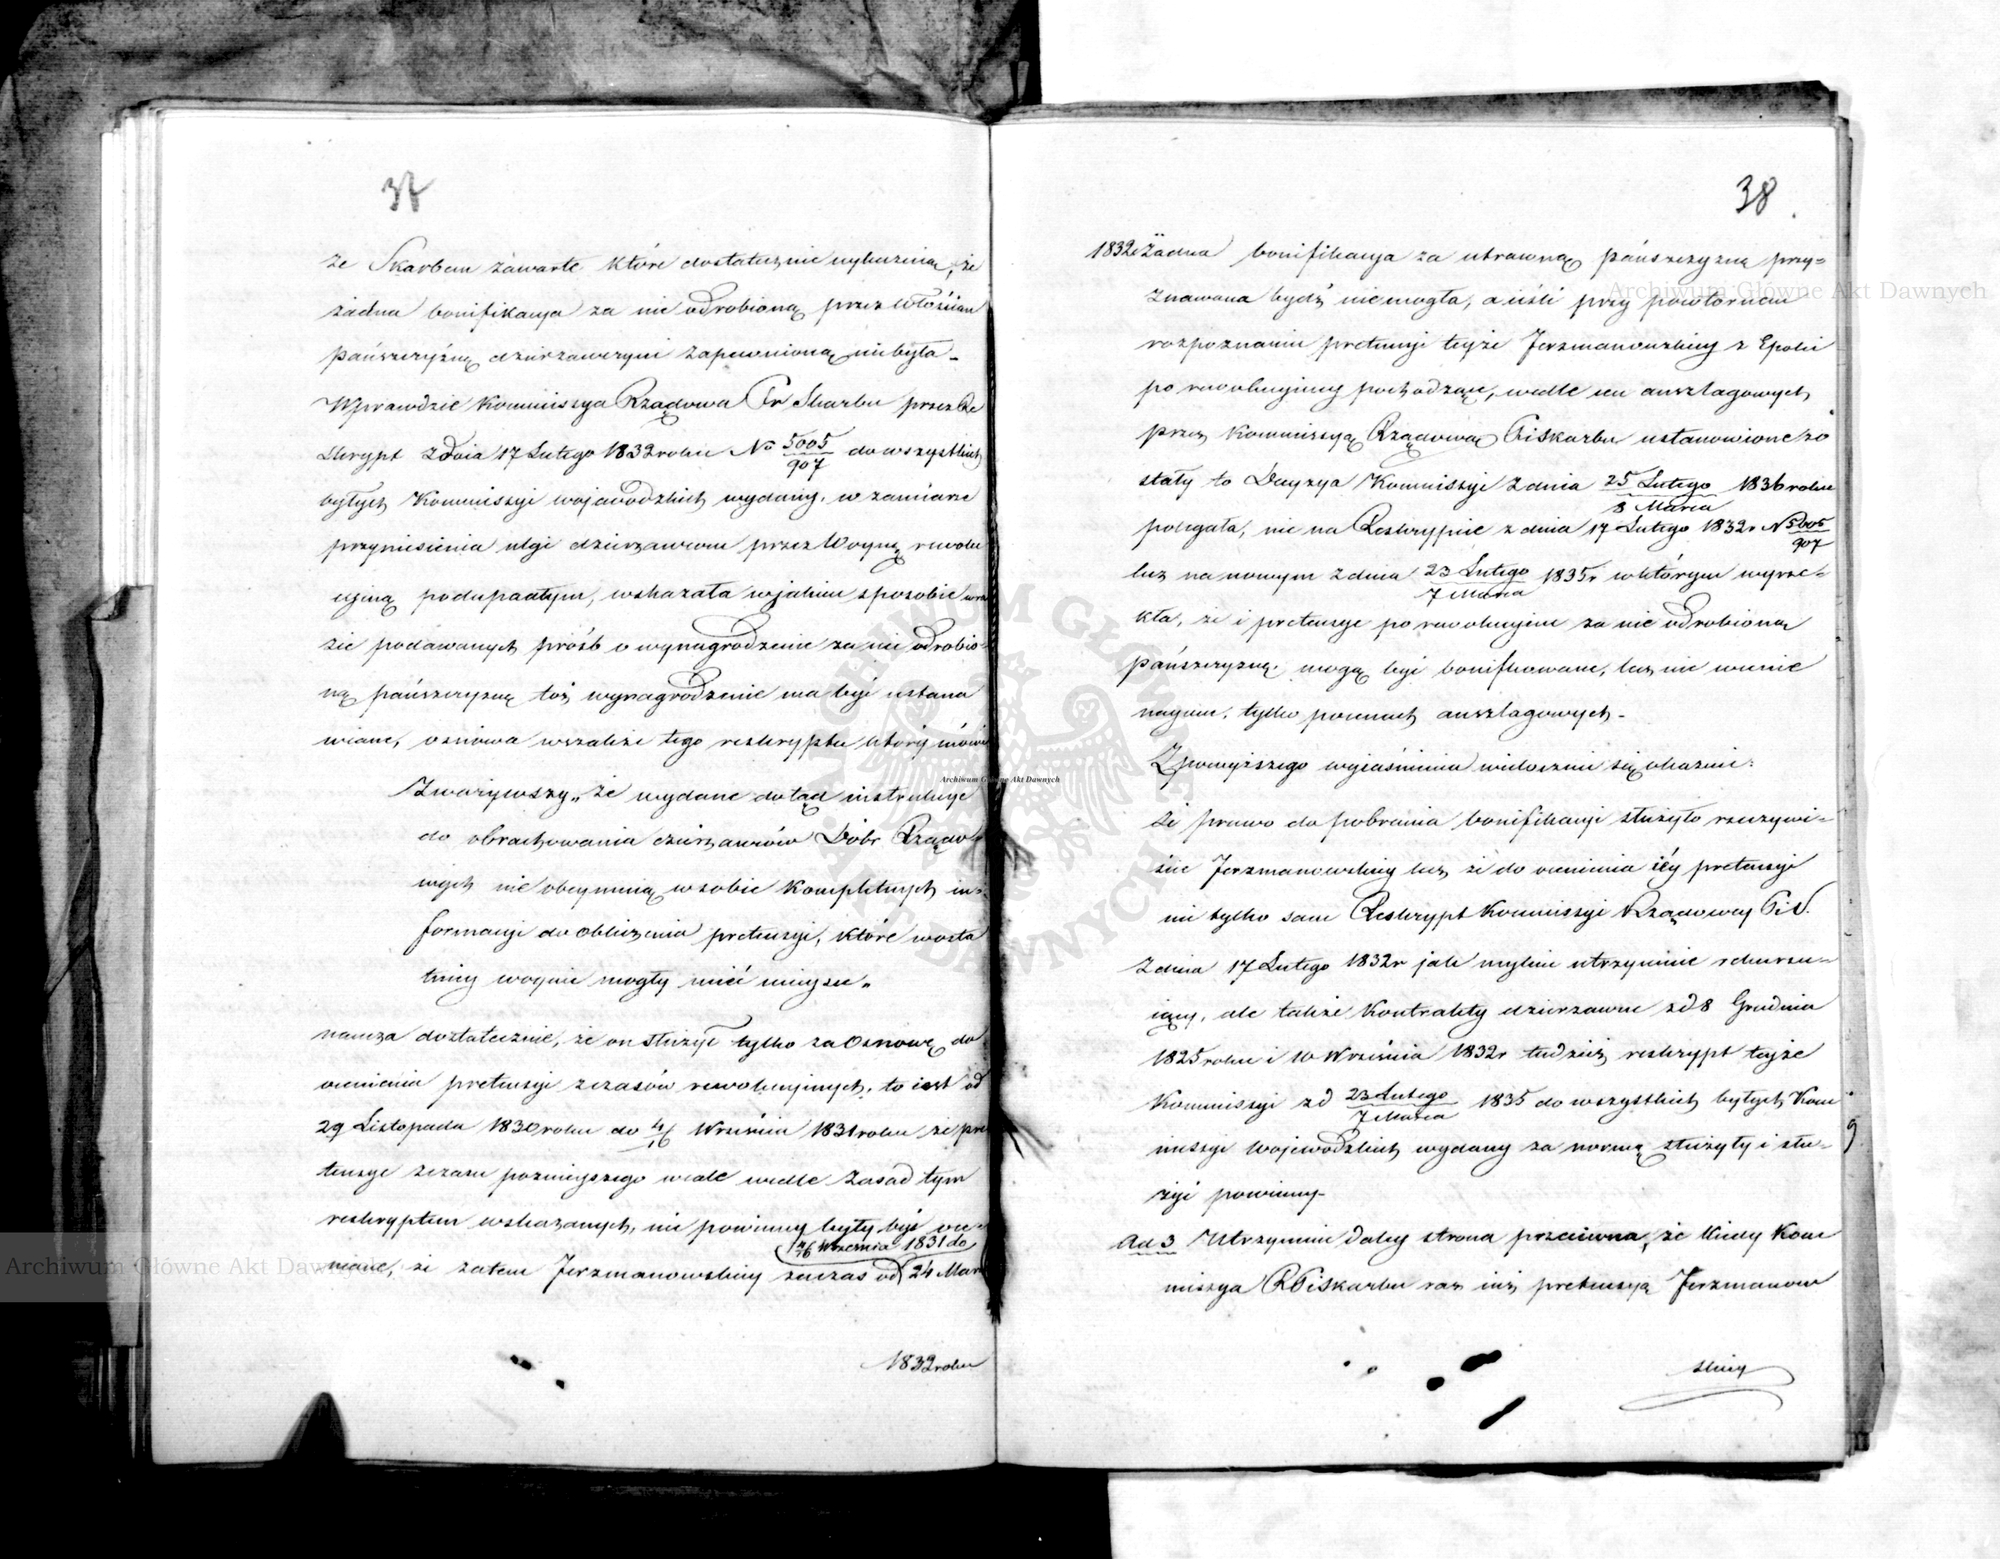 37
ze Skarbem zawarte które dostatecznie wykazują, że
żadna bonifikacya za nie odrobioną przez Włościan
pańszczyznę dzierzawczyni zapewnioną niebyła -
Wprawdzie Kommissya Rządowa Pr Skarbu przez Re
skrypt z dnia 17 Lutego 1832 roku No 5005/907 do wszystkich
byłych Kommissyi wojewodzkich wydany, w zamiarze
przyniesienia ulgi dzierzawcom przez Woynę rewolu
cyiną podupadłym, wskazała w jakim sposobie wra
zie podawanych prośb o wynagrodzenie za nie odrobio-
ną pańszczyznę toż wynagrodzenie ma byé ustana
wiane, osnowa wszakże tego reskryptu który mówi
Zwarzywszy „że wydane dotąd instrukcye
do obrachowania dzierzawców Dóbr Rządo-
wych nie obeymuią w sobie kompletnych in-
formacyi do obliczenia pretensyi, które w osta
tniey woynie mogły mieć mieysce„
naucza dostatecznie, że on służyé tylko za Osnowę do
ocenienia pretensyi z czasów rewolucyinych, to iest od
29 Listopada 1830 roku do 4/16 Września 1831 roku że pre
tensye z czasu pozniejszego wcale wedle Zasad tym
reskryptem wskazanych, nie powinny były byé oce-
niane, że zatem Jerzmanowskiey za czas od 4/16 Września 1831 do 24 Mar
1832 roku
38.
1832 r żadna bonifikacya za utraconą pańszczyznę przy-
znawana bydź niemogła, a ieśli przy powtórnem
rozpoznaniu pretensyi teyże Jerzmanowskiey z Epoki
po rewolucyiney pochodzące, wedle cen anszlagowych
przez Kommissyą Rządową PiSkarbu ustanowione zo
stały to Decyzya Kommissyi z dnia 25 Lutego/8 Marca 1836 roku
polegała, nie na Reskrypcie z dnia 17 Lutego 1832 r N 5005/907
lecz na nowym z dnia 23 Lutego/7 Marca 1835 r w którym wyrze-
kła, że i pretensye po rewolucyine za nie odrobioną
pańszczyznę mogą byé bonifikowane, lecz nie w cenie
naymu, tylko po cenach anszlagowych -
Z powyższego wyiaśnienia widocznie się okazuie:
że prawo do pobrania bonifikacyi służyło rzeczywi-
ście Jerzmanowskiey lecz że do ocenienia iéy pretensyi
nie tylko sam Reskrypt Kommissyi Rządowey P i S.
z dnia 17 Lutego 1832 r jak mylnie utrzymuie rekursu-
iący, ale także Kontrakty dzierzawne z d 8 Grudnia
1825 roku i 10 Września 1832 r tudzież reskrypt teyże
Kommissyi z d 23 Lutego/7 Marca 1835 do wszystkich byłych Kom
missyi Wojewodzkich wydany za normę służyły i słu-
żyé powinny -
Ad 3 Utrzymuie daley strona przeciwna, że kiedy Kom
missya RPiSkarbu raz iuż pretensyą Jerzmanow
skiey